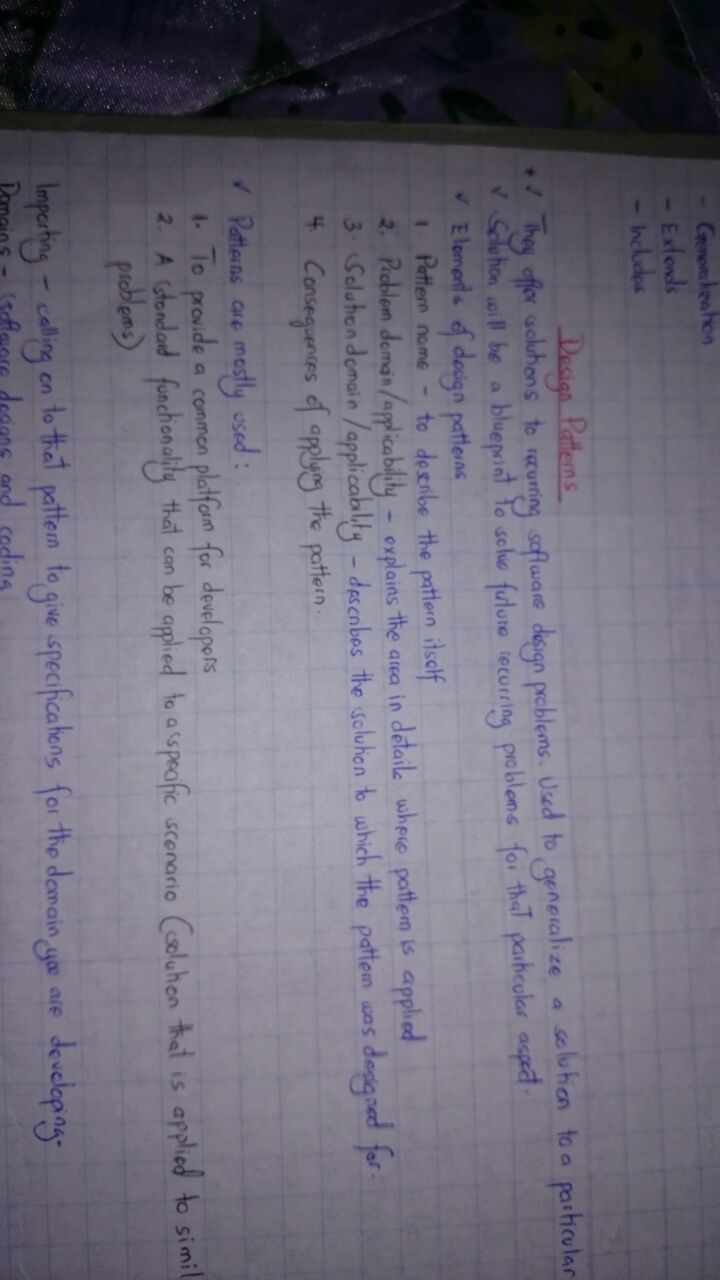 - Generalization
- Extends
- Includes
Design Patterns
* ✓ They offer solutions to recurring software design problems. Used to generalize a solution to a particular
✓ Solution will be a blueprint to solve future recurring problems for that particular aspect.
✓ Elements of design patterns
1. Pattern name - to describe the pattern itself
2. Problem domain/applicability - explains the area in details where pattern is applied
3. Solution domain/applicability - describes the solution to which the pattern was designed for.
4. Consequences of applying the pattern.
✓ Patterns are mostly used:
1. To provide a common platform for developers
2. A standard functionality that can be applied to a specific scenario (solution that is applied to simil
problems)
Importing - calling on to that pattern to give specifications for the domain you are developing.
Domains - software designs and coding